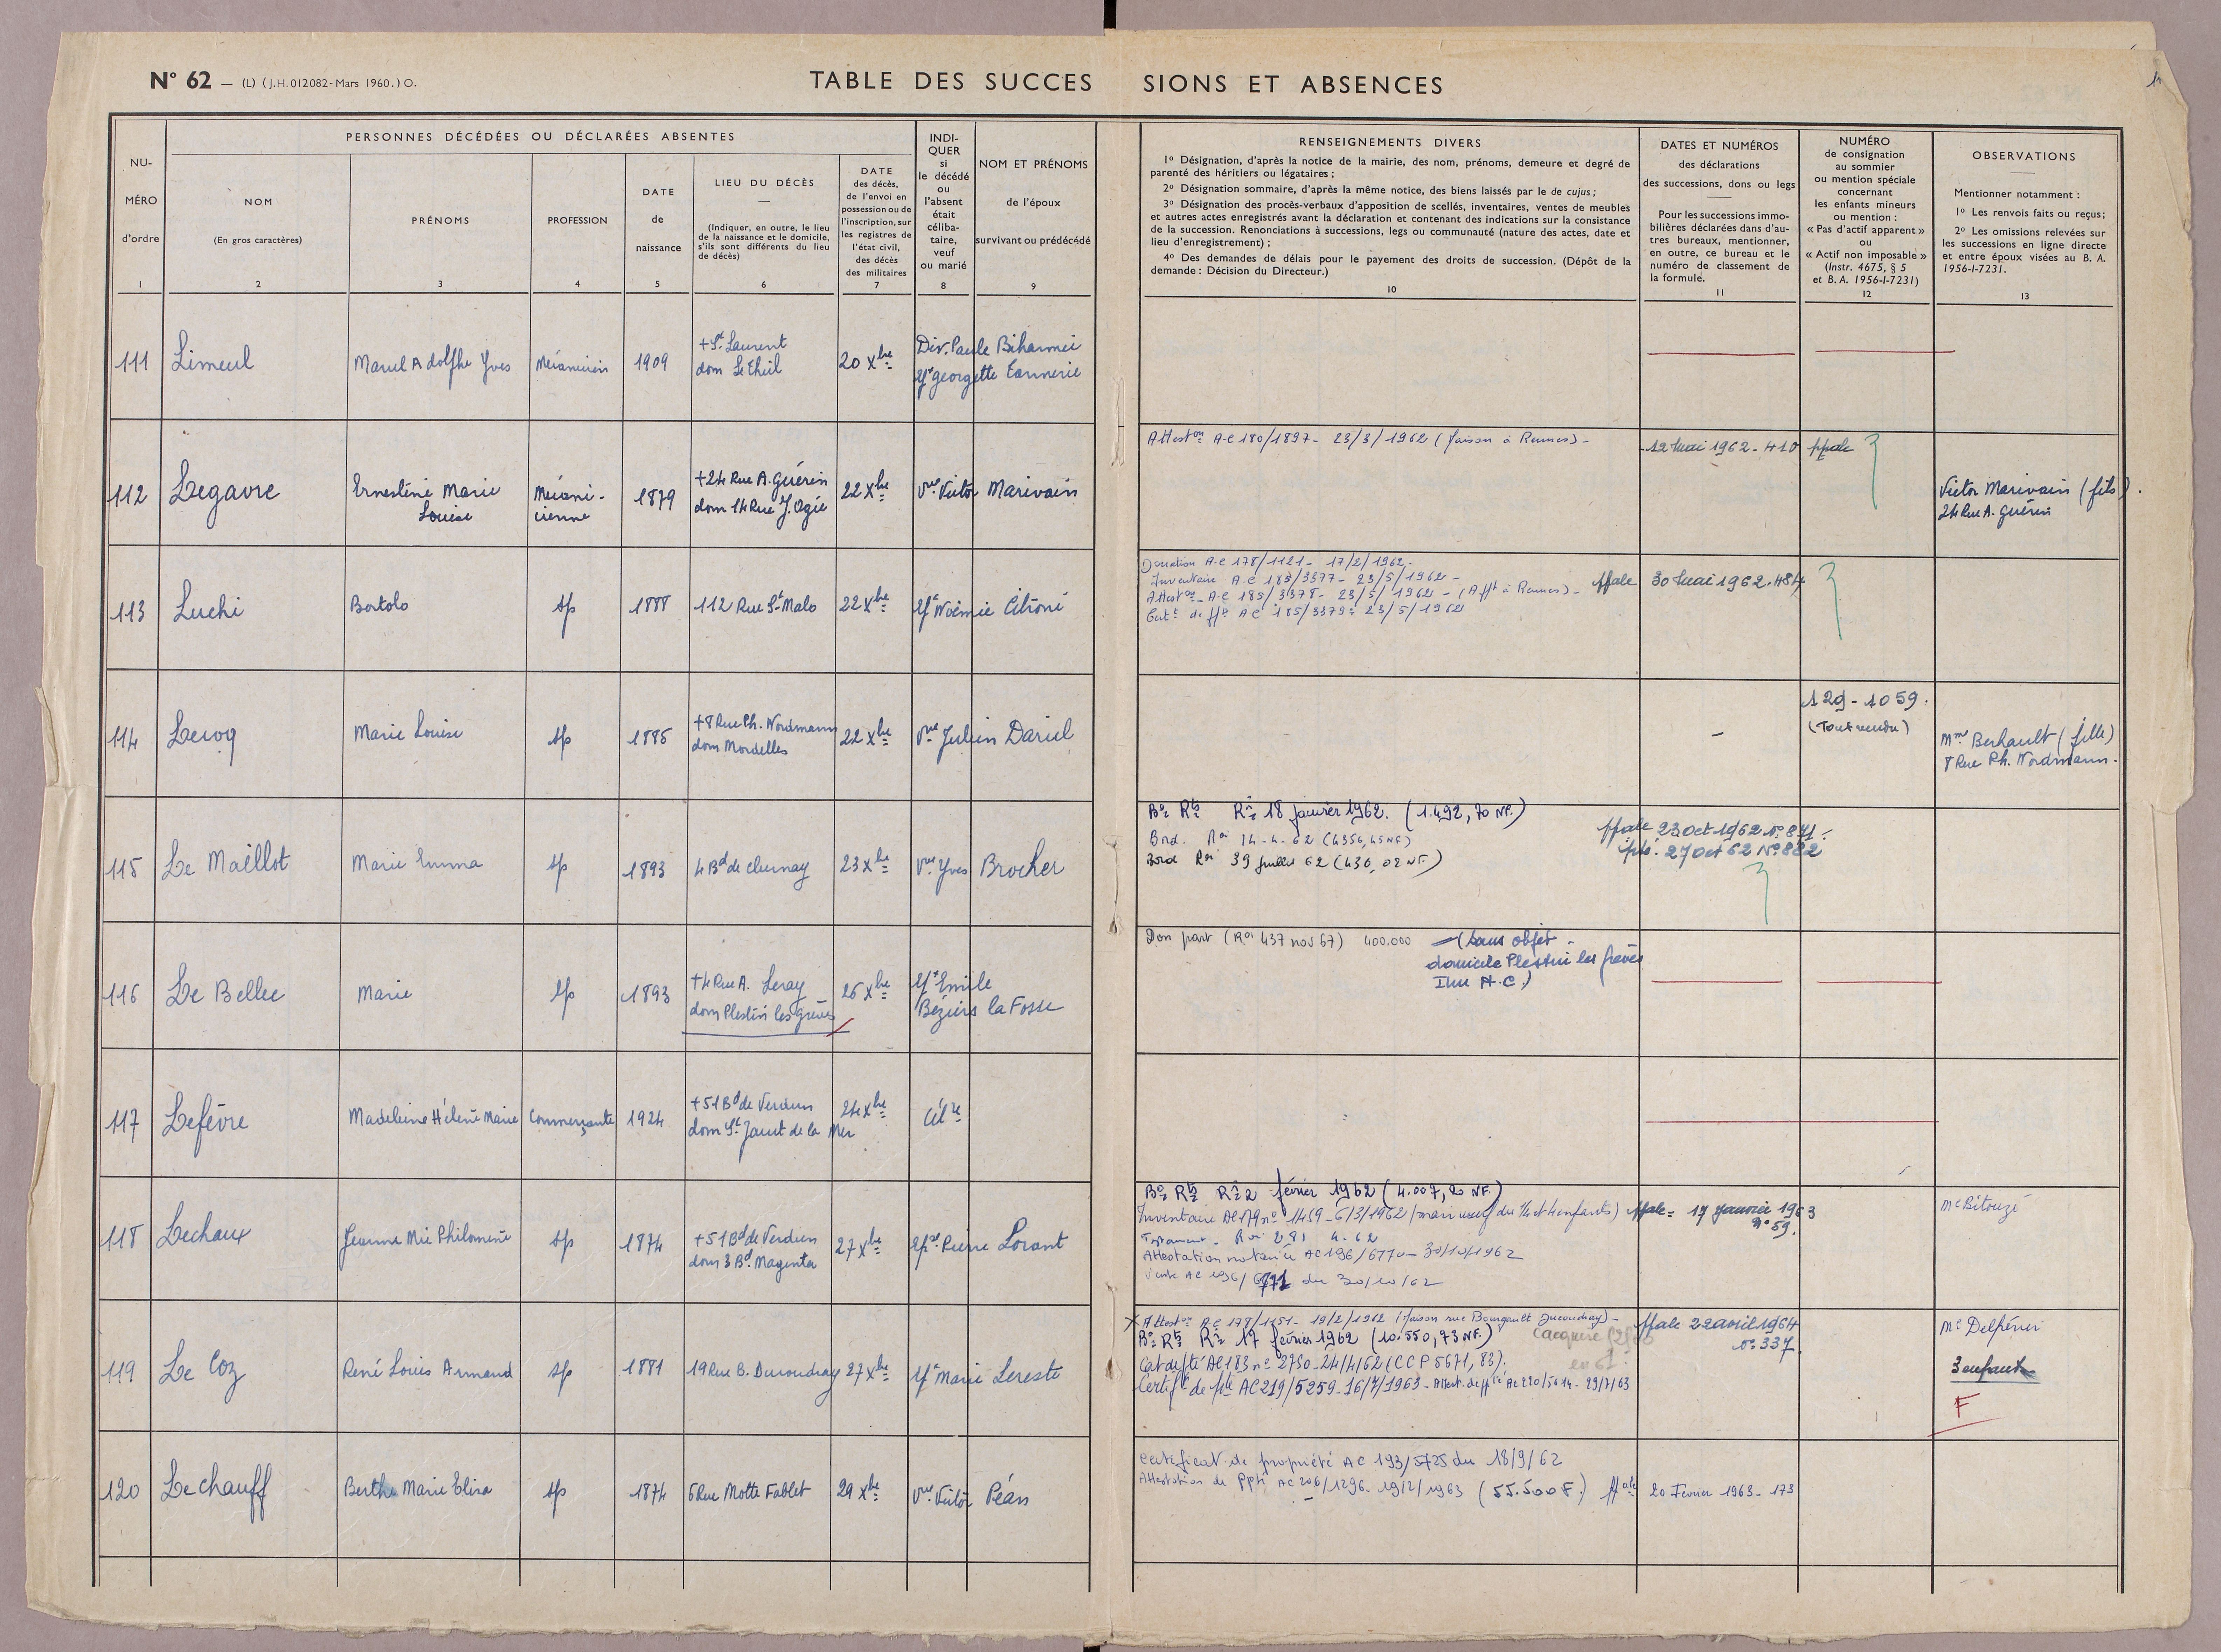 N° 62 — (L) (J.H. 012082 - Mars 1960.) O.
TABLE DES SUCCES SIONS ET ABSENCES
NU-
MÉRO
d'ordre
1
PERSONNES DÉCÉDÉES OU DÉCLARÉES ABSENTES
NOM
(En gros caractères)
2
PRÉNOMS
3
PROFESSION
4
DATE
de
naissance
5
LIEU DU DÉCÈS
(Indiquer, en outre, le lieu
de la naissance et le domicile,
s'ils sont différents du lieu
de décès)
6
DATE
des décès,
de l'envoi en
possession ou de
l'inscription, sur
les registres de
l'état civil,
des décès
des militaires
7
INDI-
QUER
si
le décédé
ou
l'absent
était
céliba-
taire,
veuf
ou marié
8
NOM ET PRÉNOMS
de l'époux
survivant ou prédécédé
9
RENSEIGNEMENTS DIVERS
1° Désignation, d'après la notice de la mairie, des nom, prénoms, demeure et degré de
parenté des héritiers ou légataires ;
2° Désignation sommaire, d'après la même notice, des biens laissés par le de cujus ;
3° Désignation des procès-verbaux d'apposition de scellés, inventaires, ventes de meubles
et autres actes enregistrés avant la déclaration et contenant des indications sur la consistance
de la succession. Renonciations à successions, legs ou communauté (nature des actes, date et
lieu d'enregistrement) ;
4° Des demandes de délais pour le payement des droits de succession. (Dépôt de la
demande : Décision du Directeur.)
10
DATES ET NUMÉROS
des déclarations
des successions, dons ou legs
Pour les successions immo-
bilières déclarées dans d'au-
tres bureaux, mentionner,
en outre, ce bureau et le
numéro de classement de
la formule.
11
NUMÉRO
de consignation
au sommier
ou mention spéciale
concernant
les enfants mineurs
ou mention :
« Pas d'actif apparent »
ou
« Actif non imposable »
(Instr. 4675, § 5
et B. A. 1956-I-7231)
12
OBSERVATIONS
Mentionner notamment :
1° Les renvois faits ou reçus ;
2° Les omissions relevées sur
les successions en ligne directe
et entre époux visées au B. A.
1956-I-7231.
13
111 Limeul Marcel Adolphe Yves Mécanicien 1909
+ St Laurent
dom Le Theil
20 Xbre
Div. Paule
Georgette
112 Legavre Ernestine Marie
Louise
Mécani-
cienne
1879
+24 Rue A. Guérin
dom 14 Rue J. Ogée
22 Xbre Vve Victor Marivain
Atteston AC 180/1897 - 23/3/1962 (Maison à Rennes) -
12 Mai 1962 - 410 ppale
Victor Marivain (fils).
24 Rue A. Guérin
113 Luchi Bortolo sp 1888 112 Rue St Malo 22 Xbre
Donation AC 178/1121 - 17/2/1962.
Inventaire AC 185/3377 - 23/5/1962 -
Atteston AC 185/3378 - 23/5/1962 - (Appt à Rennes) -
AC 185/3379 - 23/5/1962
ppale 30 Mai 1962 - 484
114 Lecoq Marie Louise sp 1885
+ 8 Rue Ph. Nordmann
dom Mordelles
22 Xbre Vve Julien
-
129 - 1059.
(Tout vendu)
Mme Berhault (fille)
8 Rue Ph. Nordmann.
115 Le Maillot Marie Emma sp 1893 4 Bd de Chézy 23 Xbre Vve Yves Brocher
18 janvier 1962. (1.492,70 NF.)
Bord. 14-4-62 (4356,45 NF)
(430,02 NF.)
ppale 23 oct 1962 N° 871.
27 Oct 62 N° 882
116 Le Bellec Marie sp 1893
+4 Rue A. Leray
dom Plestin les grèves
26 Xbre
Emile
Béziers la Fosse
Don part ( 437 nov 67) 400.000 — (sans objet -
domicile Plestin les grèves
117 Lefèvre Madeleine Hélène Marie Commerçante 1924
+51 Bd de Verdun
dom St Jacut de la Mer
24 Xbre Célre
118 Lechaux Jeanne Mie Philomène sp 1874
+51 Bd de Verdun
dom 3 Bd Magenta
27 Xbre Pierre Lorant
2 février 1962 (4.007,20 NF.)
Inventaire AC 179 n° 1459 - 6/3/1962
Testament 4.62
Attestation notariée AC 196/6770 - 30/10/1962
Vente AC 196/6771 du 30/10/62
ppale = 17 Janvier 1963
n° 59.
119 Le Coz René Louis Armand sp 1881 19 Rue B. Ducoudray 27 Xbre Marie Lereste
Atteston AC 178/1151 - 19/2/1962 (Maison rue Bourgault Ducoudray) -
17 février 1962 (10.550,73 NF.)
AC 183 n° 2730 - 24/4/62 (CCP 5671,83).
Certift de pté AC 219/5259 - 16/7/1963 - Attest. de ppté AC 220/5614 - 29/7/63
ppale 22 avril 1964
n° 337.
3 enfants
F
120 Lechauff Berthe Marie Elisa sp 1874 5 Rue Motte Fablet 29 Xbre Vve Victor Péan
Certificat de propriété AC 193/5725 du 18/9/62
Attestation de Ppté AC 206/1296 - 19/2/1963 (55.500 F.) ppale
20 Février 1963 - 173